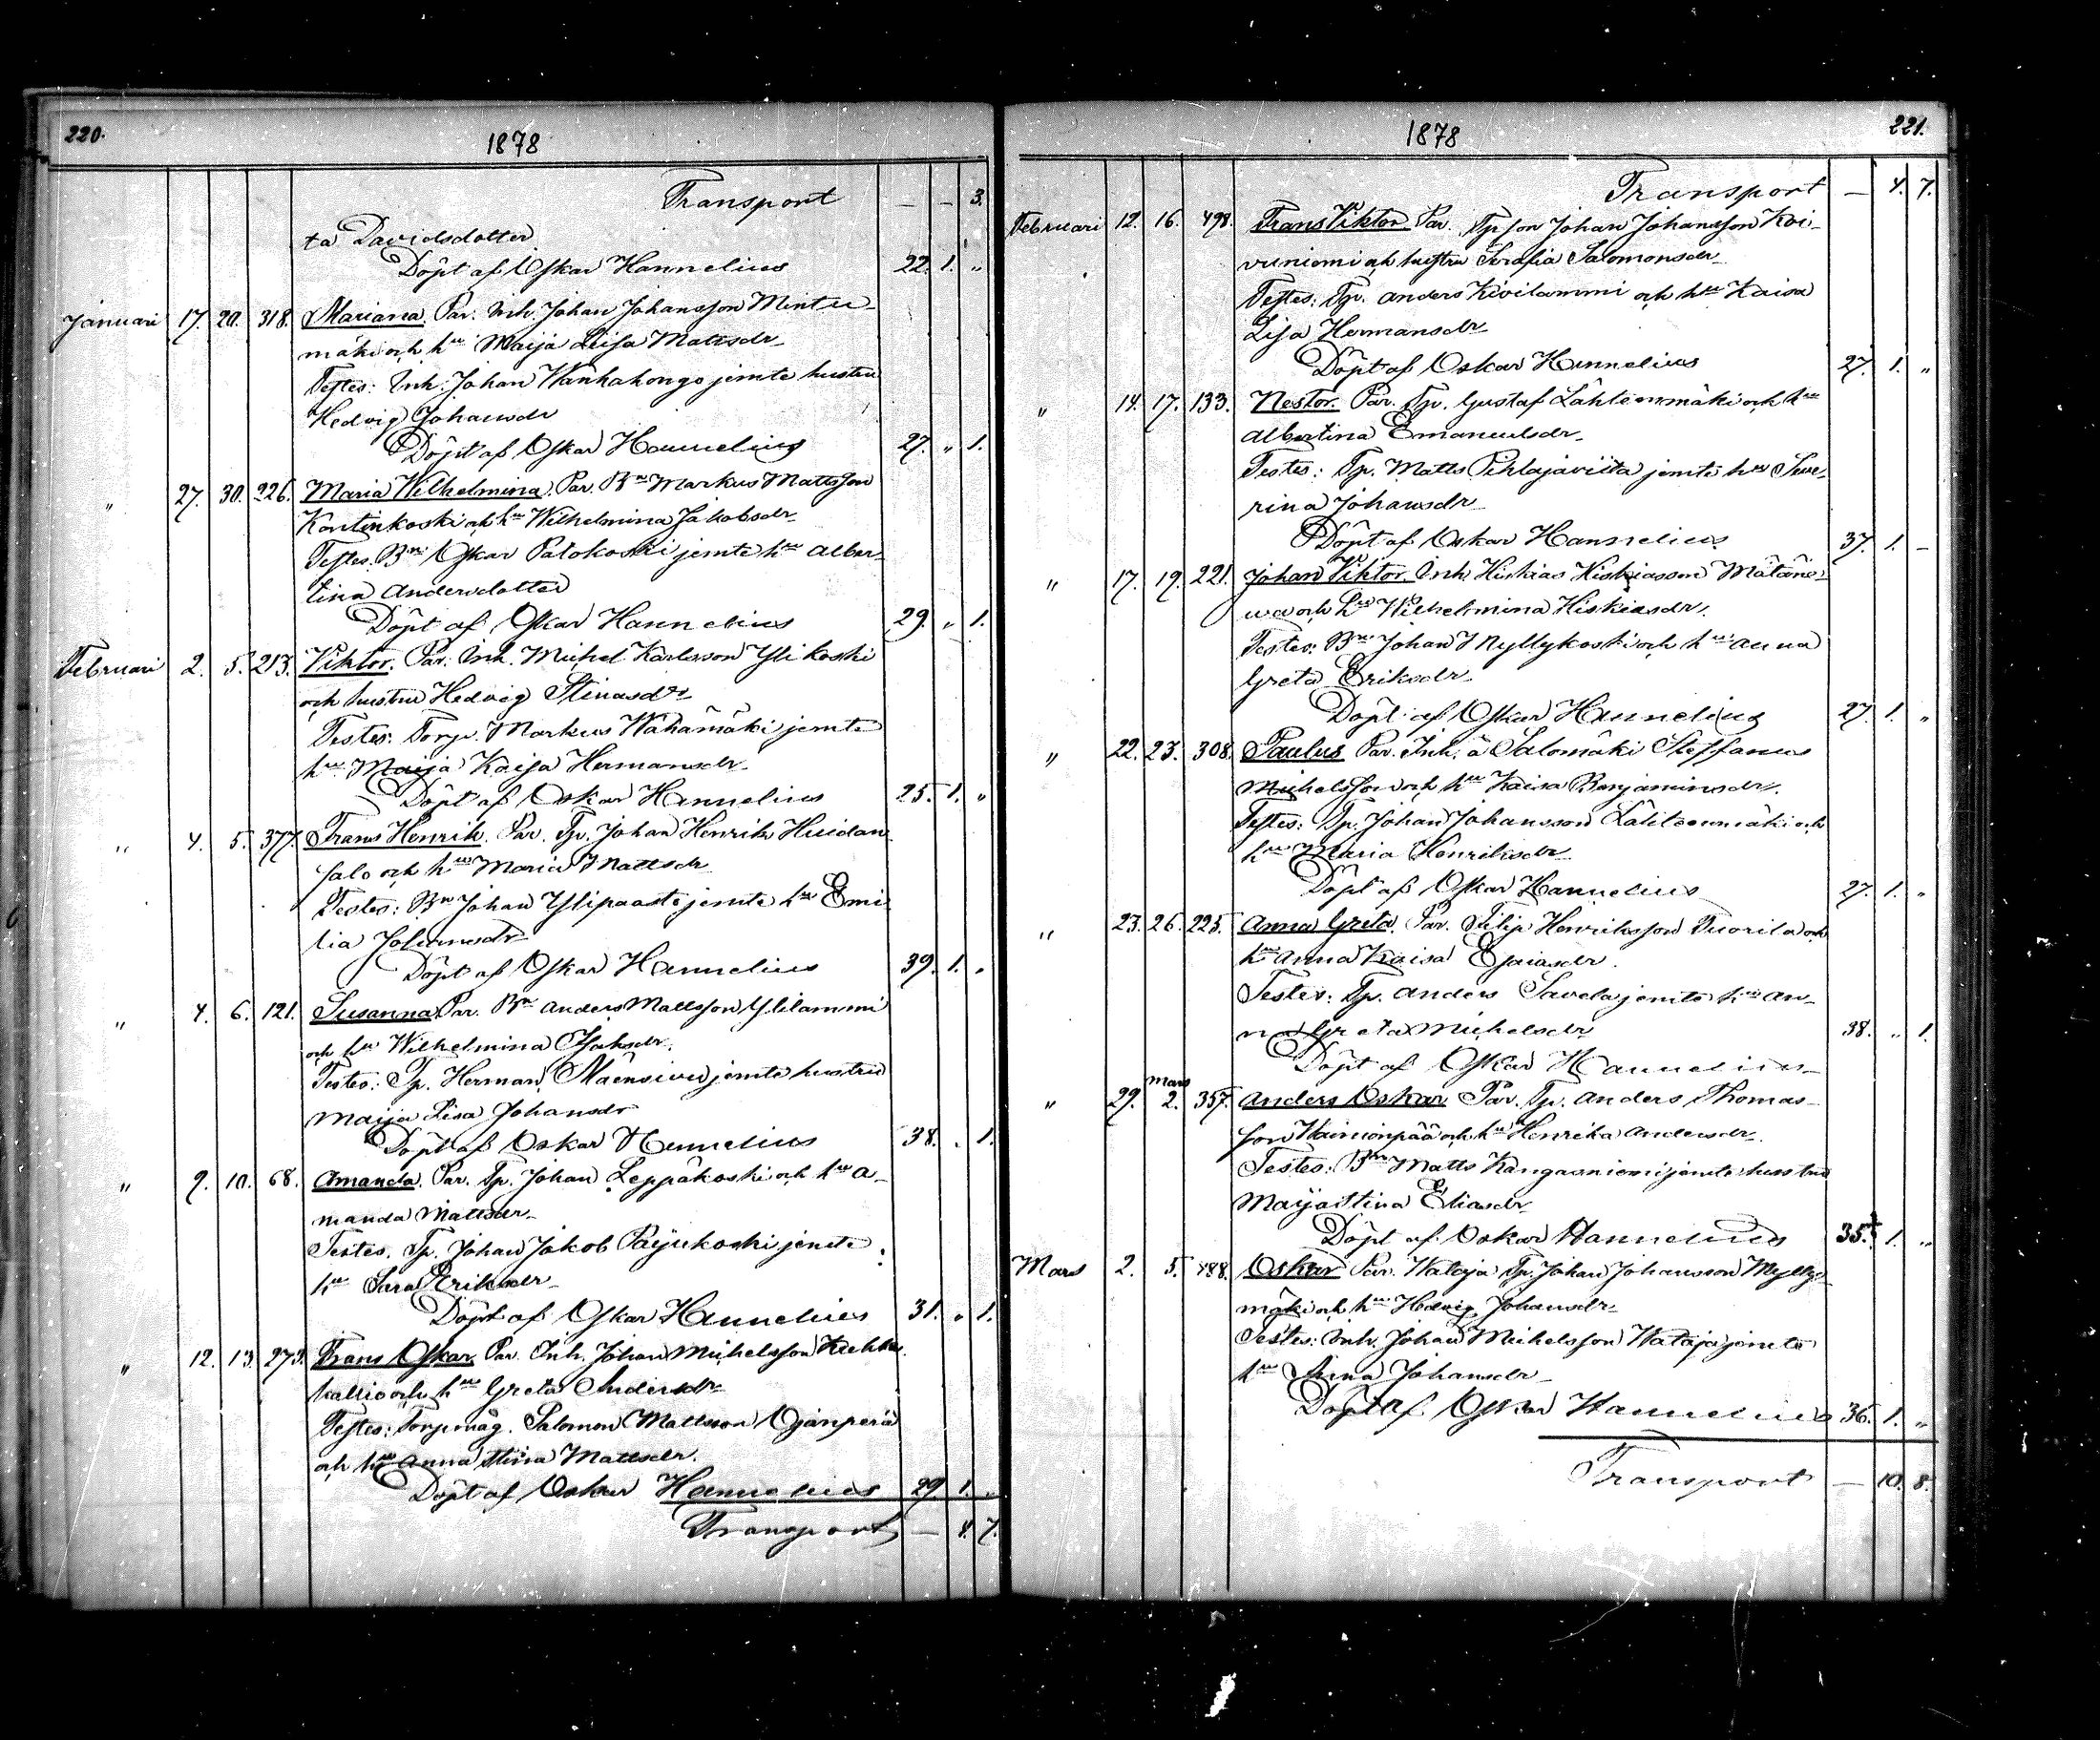 220.
1878
Transport — — 3.
ta Davidsdotter
Döpt af Oskar Hannelius 22. 1. "
Januari 17. 20. 318. Mariana. Par. Inh. Johan Johansson Mintu-
mäki och hu Maija Liisa Mattsdr
Testes: Inh. Johan Wanhahongo jemte hustru
Hedvig Johansdr
Döpt af Oskar Hannelius 27. " 1.
" 27. 30. 226. Maria Wilhelmina. Par. Bn Markus Mattsson
Kontinkoski och hu Wilhelmina Jakobsdr
Testes. Bn Oskar Palokoski jemte hu Alber-
tina Andersdotter
Döpt af Oskar Hannelius 29. " 1.
Februari 2. 5. 213. Viktor. Par. Inh. Michel Karlsson Ylikoski
och hustru Hedvig Stinasdr
Testes: Torp. Markus Wähämäki jemte
hu Maija Kaisa Hermansdr
Döpt af Oskar Hannelius 25. 1. "
" 4. 5. 377. Frans Henrik. Par. Tp. Johan Henrik Huidan
salo och hu Maria Mattsdr
Testes: Bn Johan Ylipaasto jemte hu Emi
lia Johansdr
Döpt af Oskar Hannelius 39. 1. "
" 4. 6. 121. Susanna. Par. Bn Anders Mattsson Ylilammi
och hu Wilhelmina Isaksdr.
Testes: Tp. Herman Mäensivu jemte hustru
Maija Lisa Johansdr
Döpt af Oskar Hannelius 38. " 1.
" 9. 10. 68. Amanda. Par. Tp. Johan Leppäkoski och hu A-
manda Mattsdr
Testes. Tp. Johan Jakob Pajukoski jemte
hu Sara Eriksdr
Döpt af Oskar Hannelius 31. " 1.
" 12. 13. 273. Frans Oskar. Par. Inh. Johan Michelsson
kallio och hu Greta Andersdr
Testes: Torpmåg. Salomon Mattsson Ojanperä
och hu Anna Stina Mattsdr.
Döpt af Oskar Hannelius 29. 1. "
Transport — 4. 7.
221.
1878
Transport — 4. 7.
Februari 12. 16. 498. Frans Viktor. Par. Tpson Johan Johansson Koi-
vuniemi och hustru Serafia Salomonsdr
Testes: Tp. Anders Kivilammi och hu Kaisa
Lisa Hermansdr
Döpt af Oskar Hannelius 27. 1. "
" 14. 17. 133. Nestor. Par. Tp. Gustaf Lähteenmäki och hu
Albertina Emanuelsdr
Testes: Tp. Matts Pihlajaviita jemte hu Seve-
rina Johansdr
Döpt af Oskar Hannelius 37. 1. —
" 17. 19. 221. Johan Viktor. Inh. Hiskias Hiskiasson Mätäne-
wa och hu Wilhelmina Hiskiasdr.
Testes: Bn Johan Myllykoski och hu Anna
Greta Eriksdr
Döpt af Oskar Hannelius 27. 1. "
" 22. 23. 308. Paulus Par. Inh. å Salomäki Steffanus
Michelsson och hu Kaisa Benjaminsdr.
Testes: Tp. Johan Johansson Lähteenmäki och
hu Maria Henriksdr
Döpt af Oskar Hannelius 27. 1. "
" 23. 26. 225. Anna Greta. Par. Filip Henriksson Tuorila och
hu Anna Kaisa Esaiasdr.
Testes: Tp. Anders Savela jemte hu An-
na Greta Michelsdr 38. " 1.
Döpt af Oskar Hannelius
mars
" 29. 2. 357. Anders Oskar Par. Tp. Anders Thomas-
son Wainionpää och hu Henrika Andersdr.
Testes: Bn Matts Kangasniemi jemte hustru
Maija Stina Eliasdr
Döpt af Oskar Hannelius 35. 1. "
Mars 2. 5. 488. Oskar Par. Wataja Tp. Johan Johansson Mylly-
mäki och hu Hedvig Johansdr
Testes: Inh. Johan Michelsson Wataja jemte
hu Anna Johansdr
Döpt af Oskar Hannelius 36. 1. "
Transport — 10. 8.